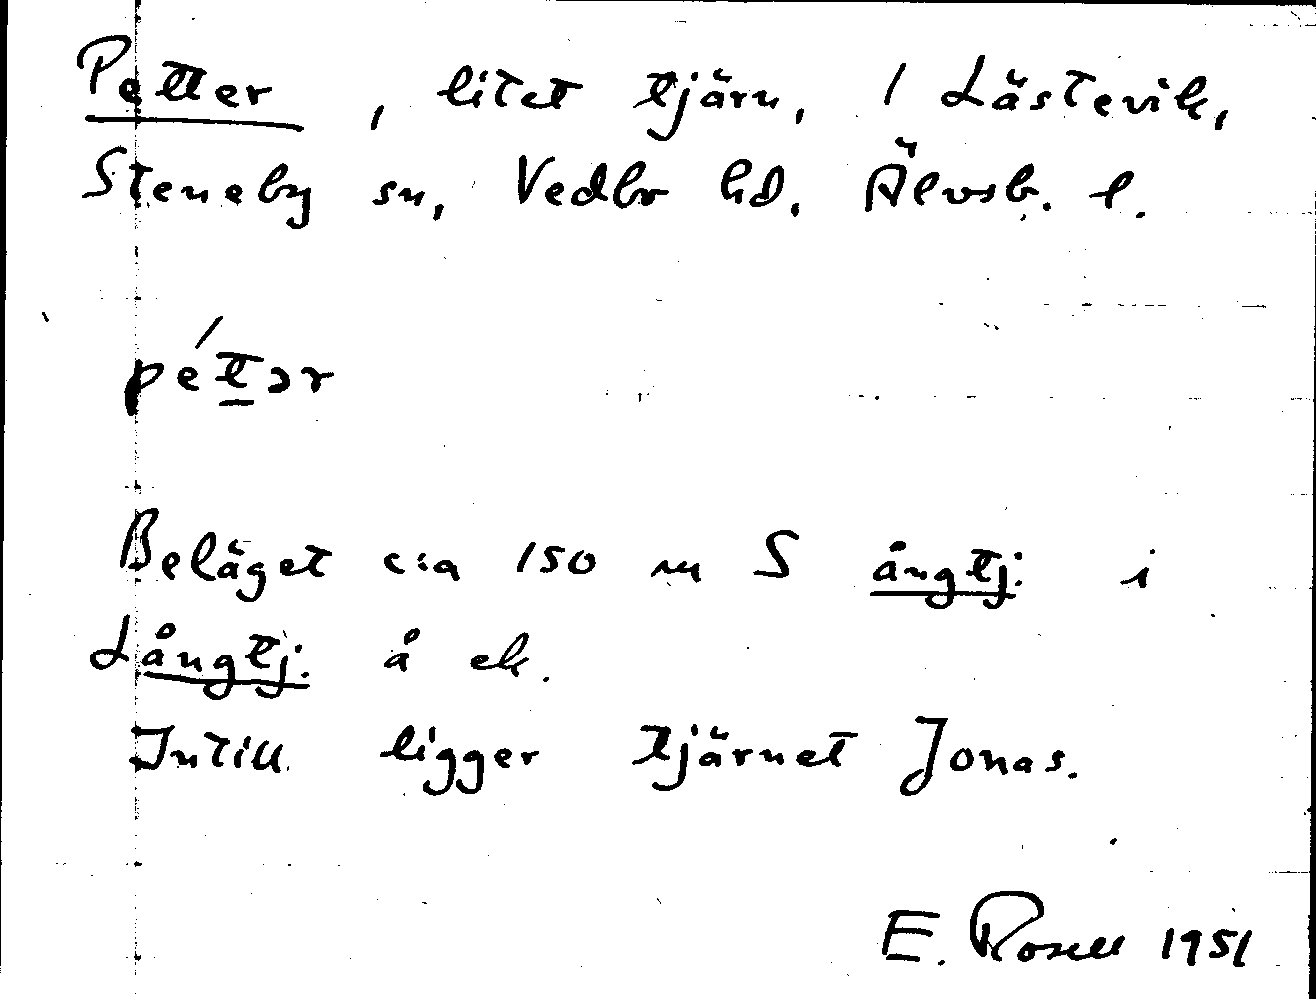 Petter, litet tjärn, / Lästevik,
Steneby sn, Vedbo hd, Älvsb. l.
péttər
Beläget c:a 150 m S ångtj. i
Långtj. å ek.
Intill ligger tjärnet Jonas.
E. Rosell 1951